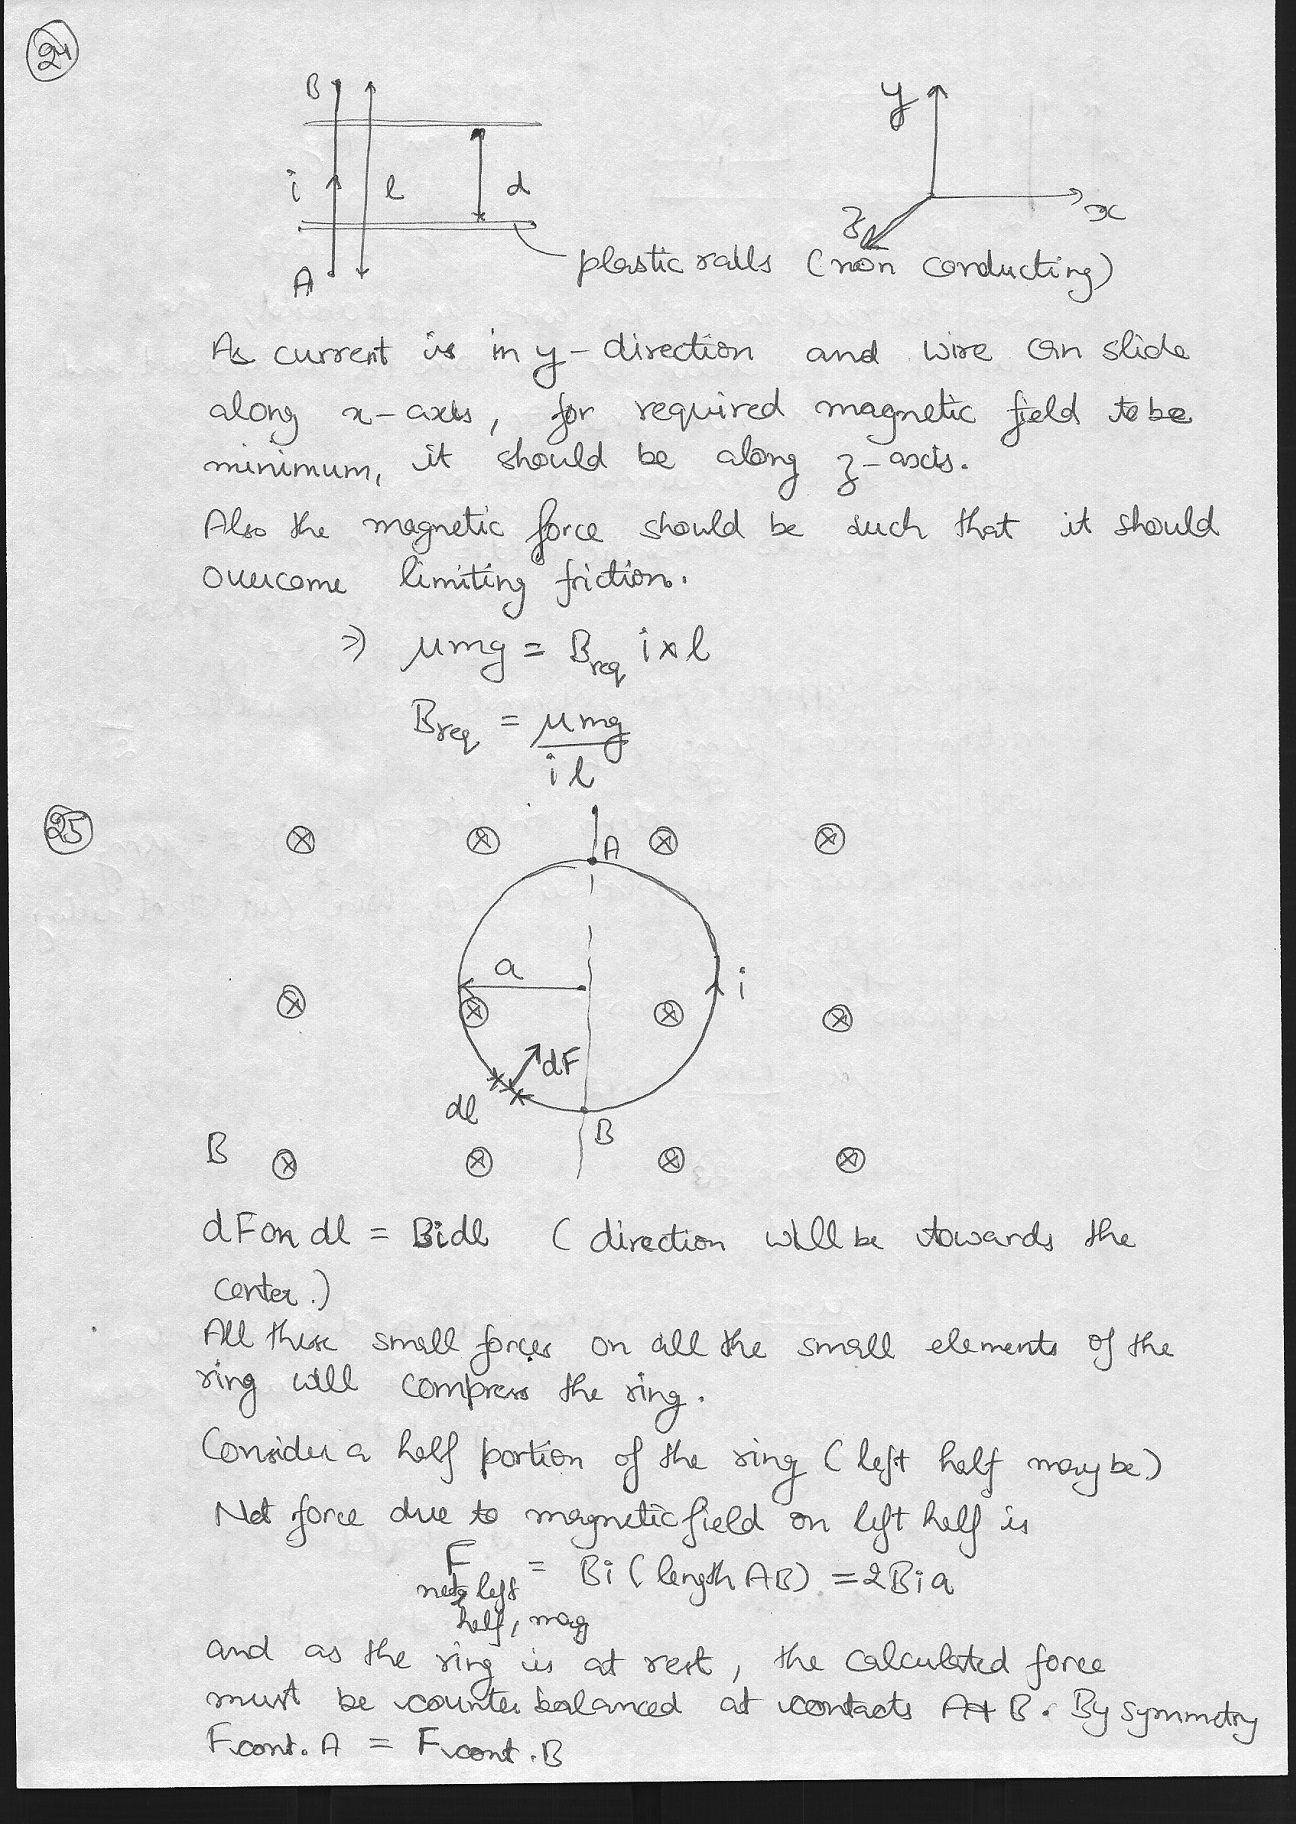 24
B
y
i
l
d
x
z
A
plastic rails (non conducting)
As current is in y-direction and wire can slide
along x-axis, for required magnetic field to be
minimum, it should be along z-axis.
Also the magnetic force should be such that it should
overcome limiting friction.
⇒ μmg = Breq i×l
Breq = μmg / il
25
⊗ ⊗ A ⊗ ⊗
a
i
⊗ ⊗ ⊗ ⊗
dF
dl
B
B ⊗ ⊗ ⊗ ⊗
dF on dl = Bidl (direction will be towards the
center.)
All these small forces on all the small elements of the
ring will compress the ring.
Consider a half portion of the ring (left half may be)
Net force due to magnetic field on left half is
F net, left half, mag = Bi (length AB) = 2Bia
and as the ring is at rest, the calculated force
must be counter balanced at contacts A & B. By symmetry
Fcont. A = Fcont. B